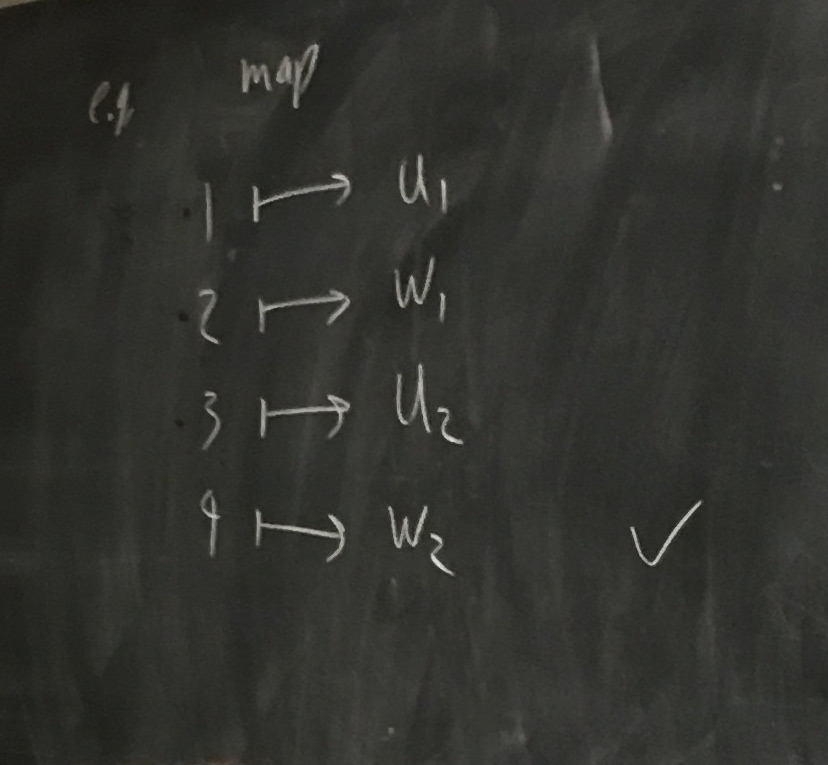 e.g map
1 ↦ u₁
2 ↦ w₁
3 ↦ u₂
4 ↦ w₂ ✓